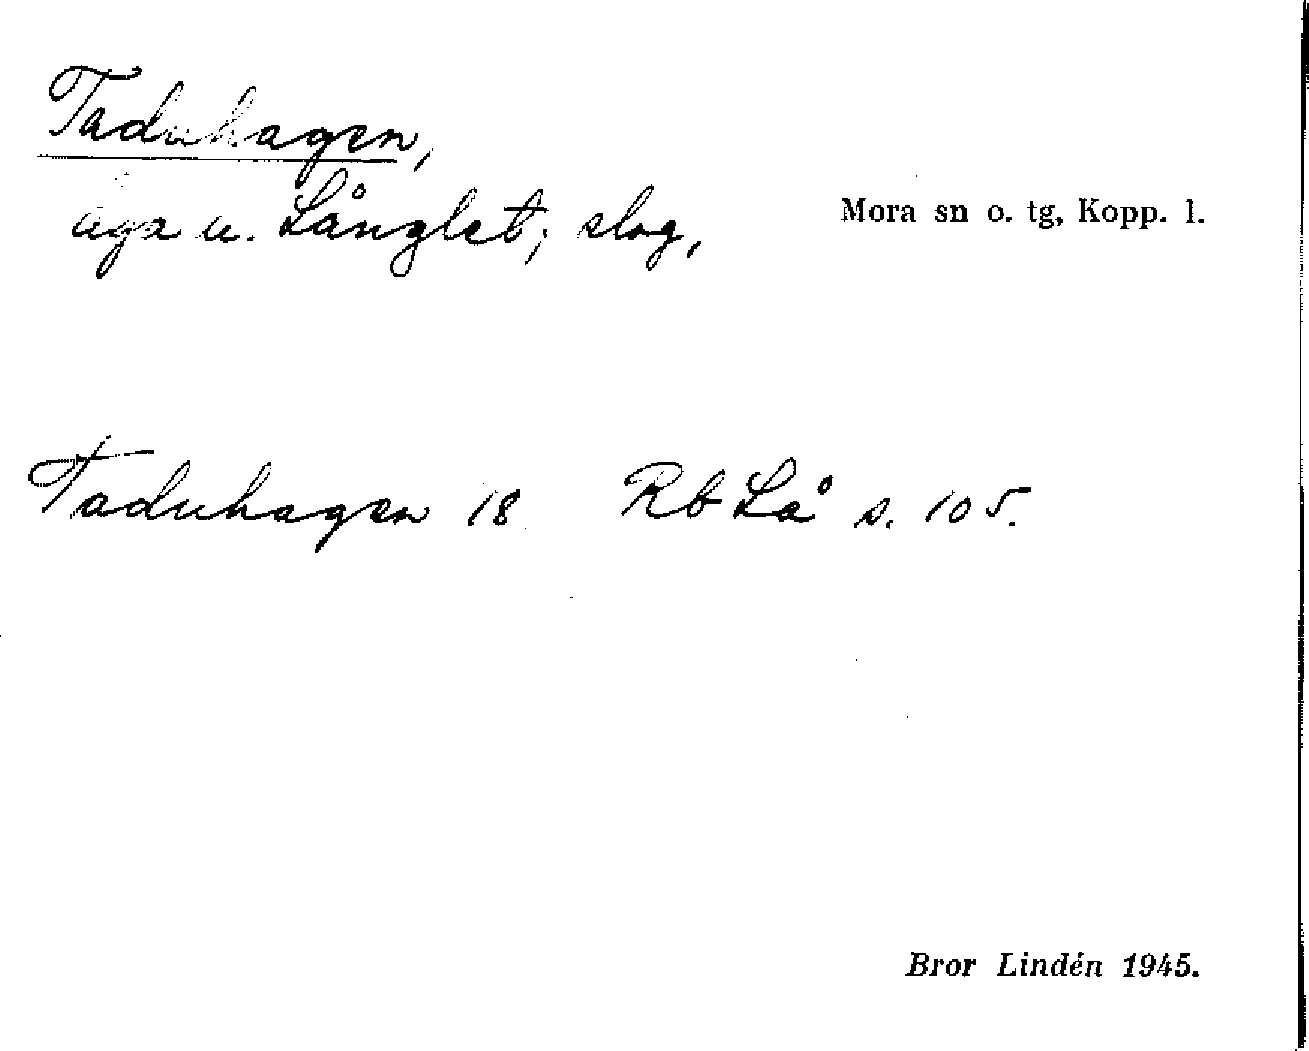 Taduhagen,
äga u. Långlet; slog,
Mora sn o. tg, Kopp. l.
Taduhagen 18 Rb Lå s. 105.
Bror Lindén 1945.